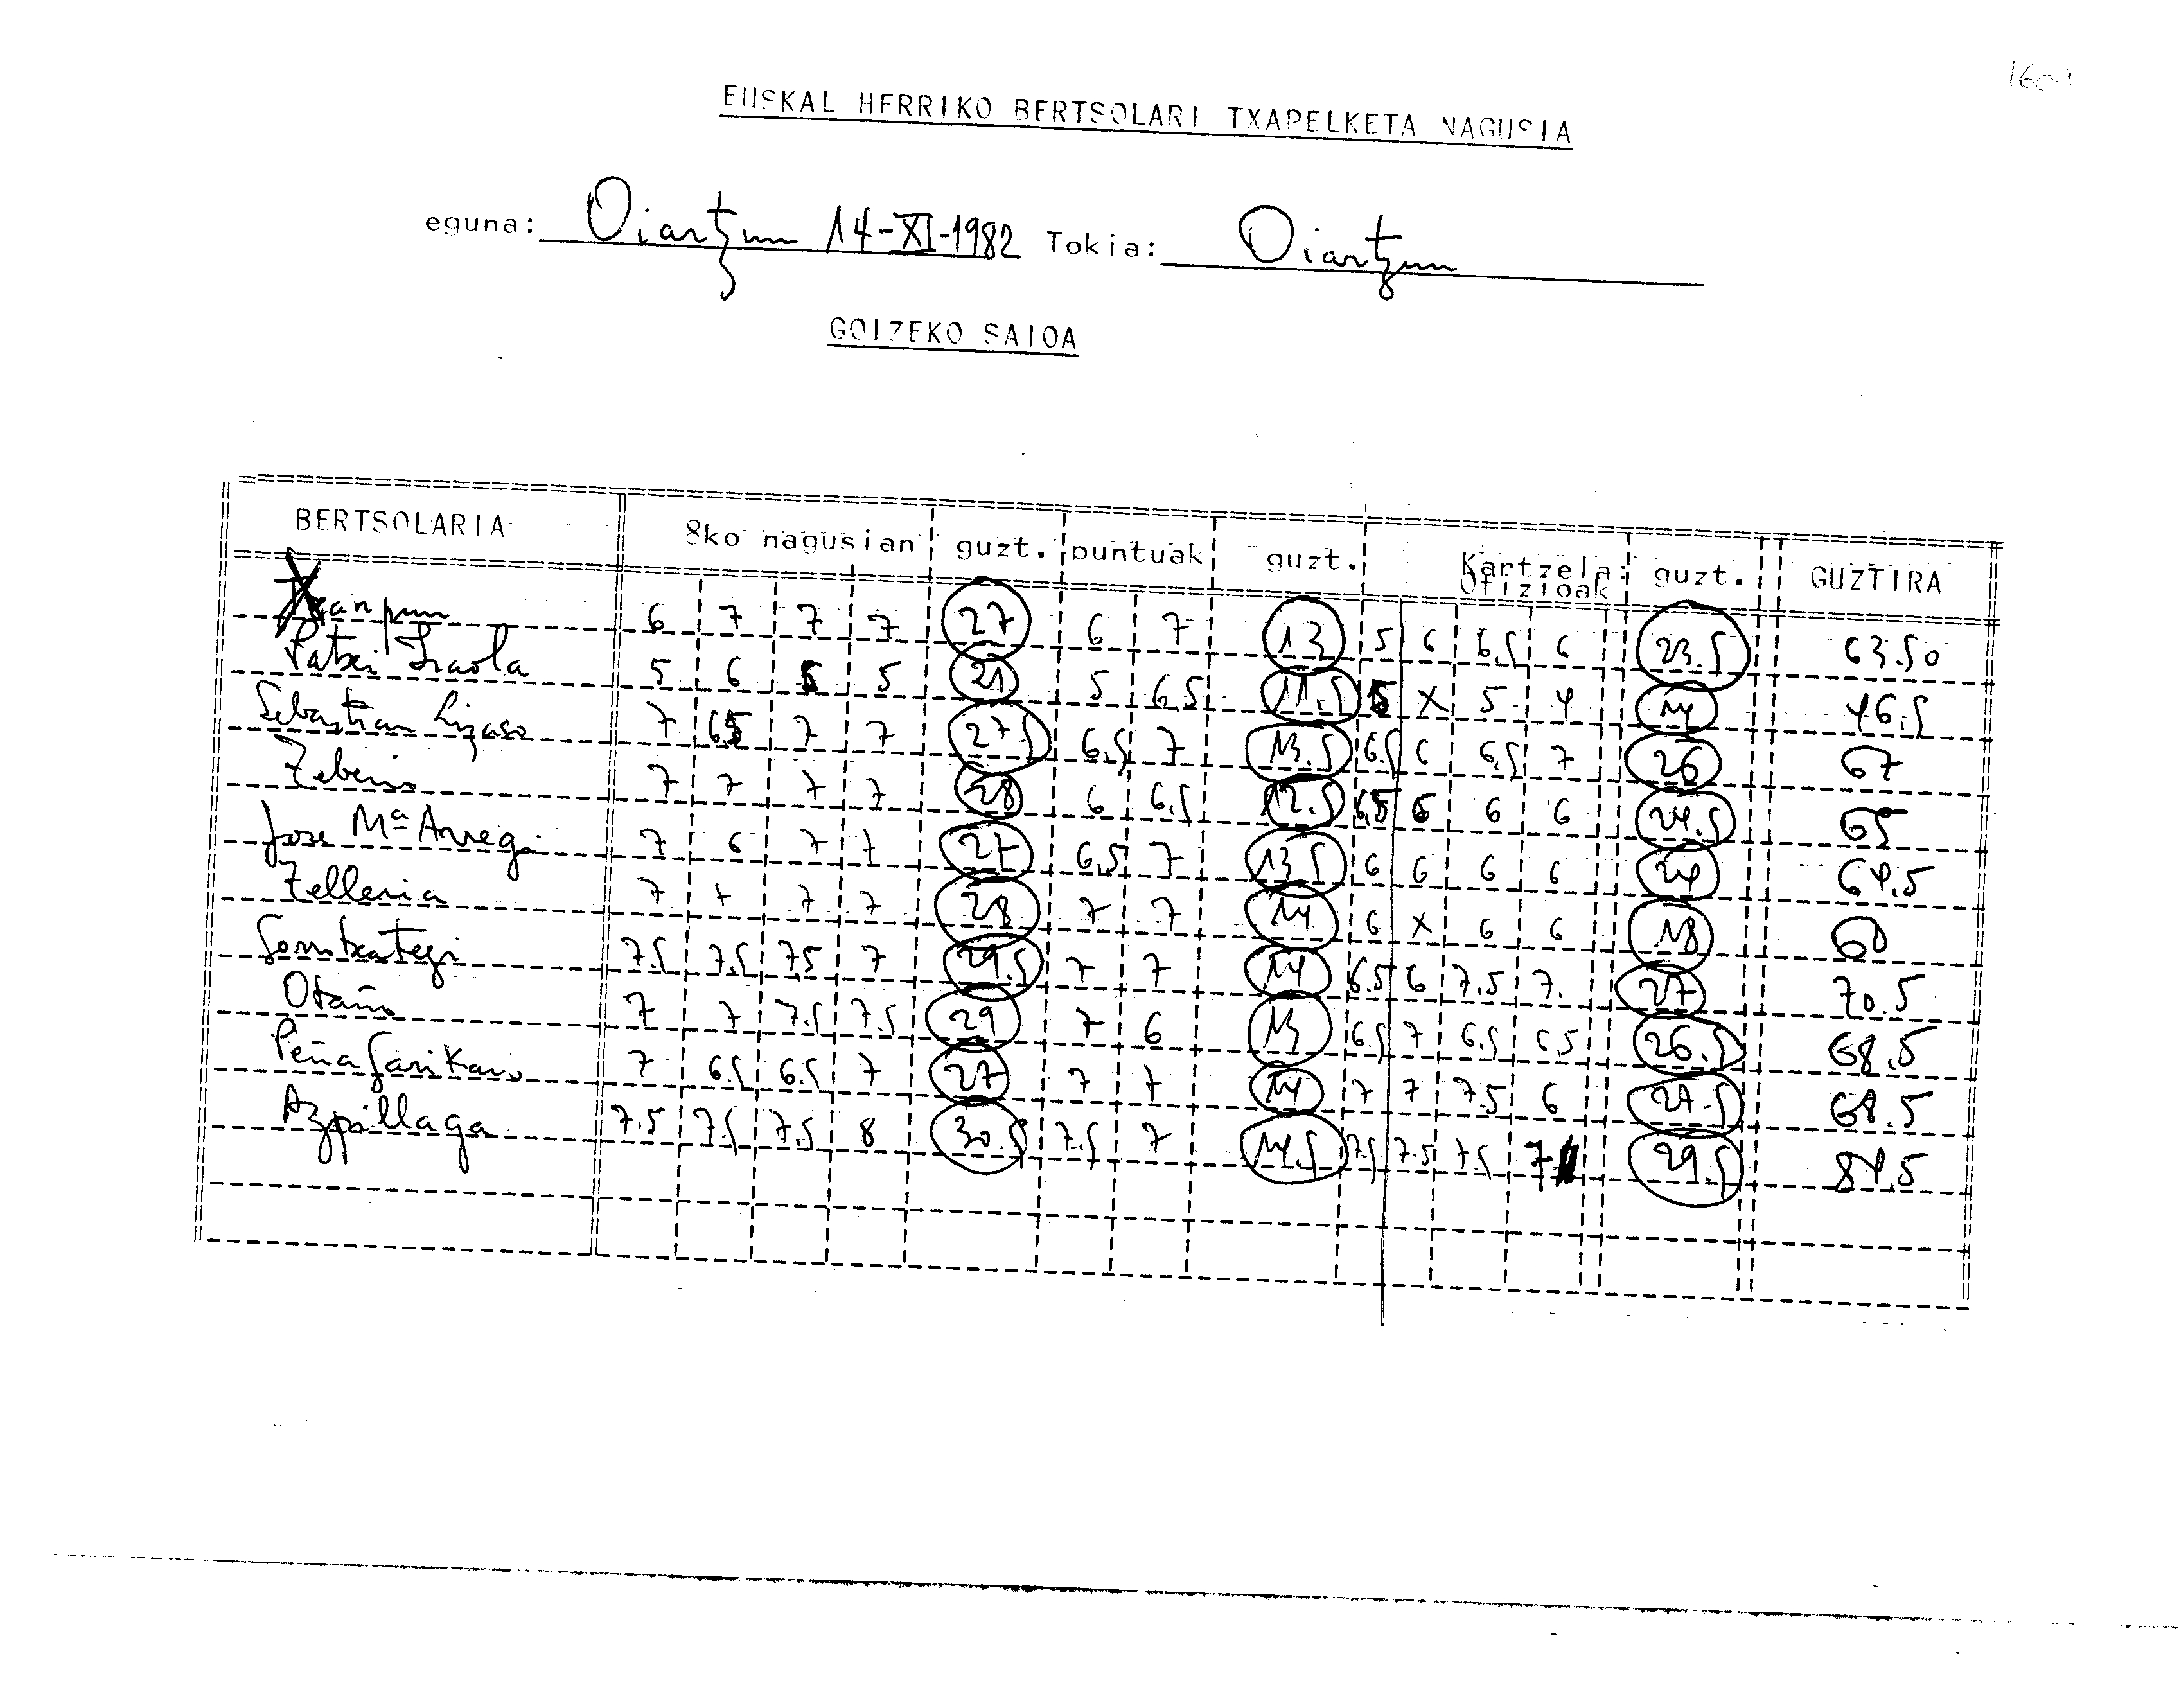 EUSKAL HERRIKO BERTSOLARI TXAPELKETA NAGUSIA
eguna: Oiartzun 14-XI-1982 Tokia: Oiartzun
GOIZEKO SAIOA
BERTSOLARIA 8ko nagusian guzt. puntuak guzt. Kartzela: Ofizioak guzt. GUZTIRA
Xanpun 6 7 7 7 27 6 7 13 5 6 6.5 6 23.5 63.50
Patxi Iraola 5 6 5 5 21 5 6.5 11.5 5 X 5 4 14 46.5
Sebastian Lizaso 7 6.5 7 7 27.5 6.5 7 13.5 6.5 6 6.5 7 26 67
Zeberio 7 7 7 7 28 6 6.5 12.5 6.5 6 6 6 24.5 65
Jose Mª Arregi 7 6 7 7 27 6.5 7 13.5 6 6 6 6 24 64.5
Telleria 7 7 7 7 28 7 7 14 6 X 6 6 18 60
Gorrotxategi 7.5 7.5 7.5 7 29.5 7 7 14 6.5 6 7.5 7. 27 70.5
Otaño 7 7 7.5 7.5 29 7 6 13 6.5 7 6.5 6.5 26.5 68.5
Peñagarikano 7 6.5 6.5 7 27 7 7 14 7 7 7.5 6 27.5 68.5
Azpillaga 7.5 7.5 7.5 8 30.5 7.5 7 14.5 7.5 7.5 7.5 7 29.5 84.5